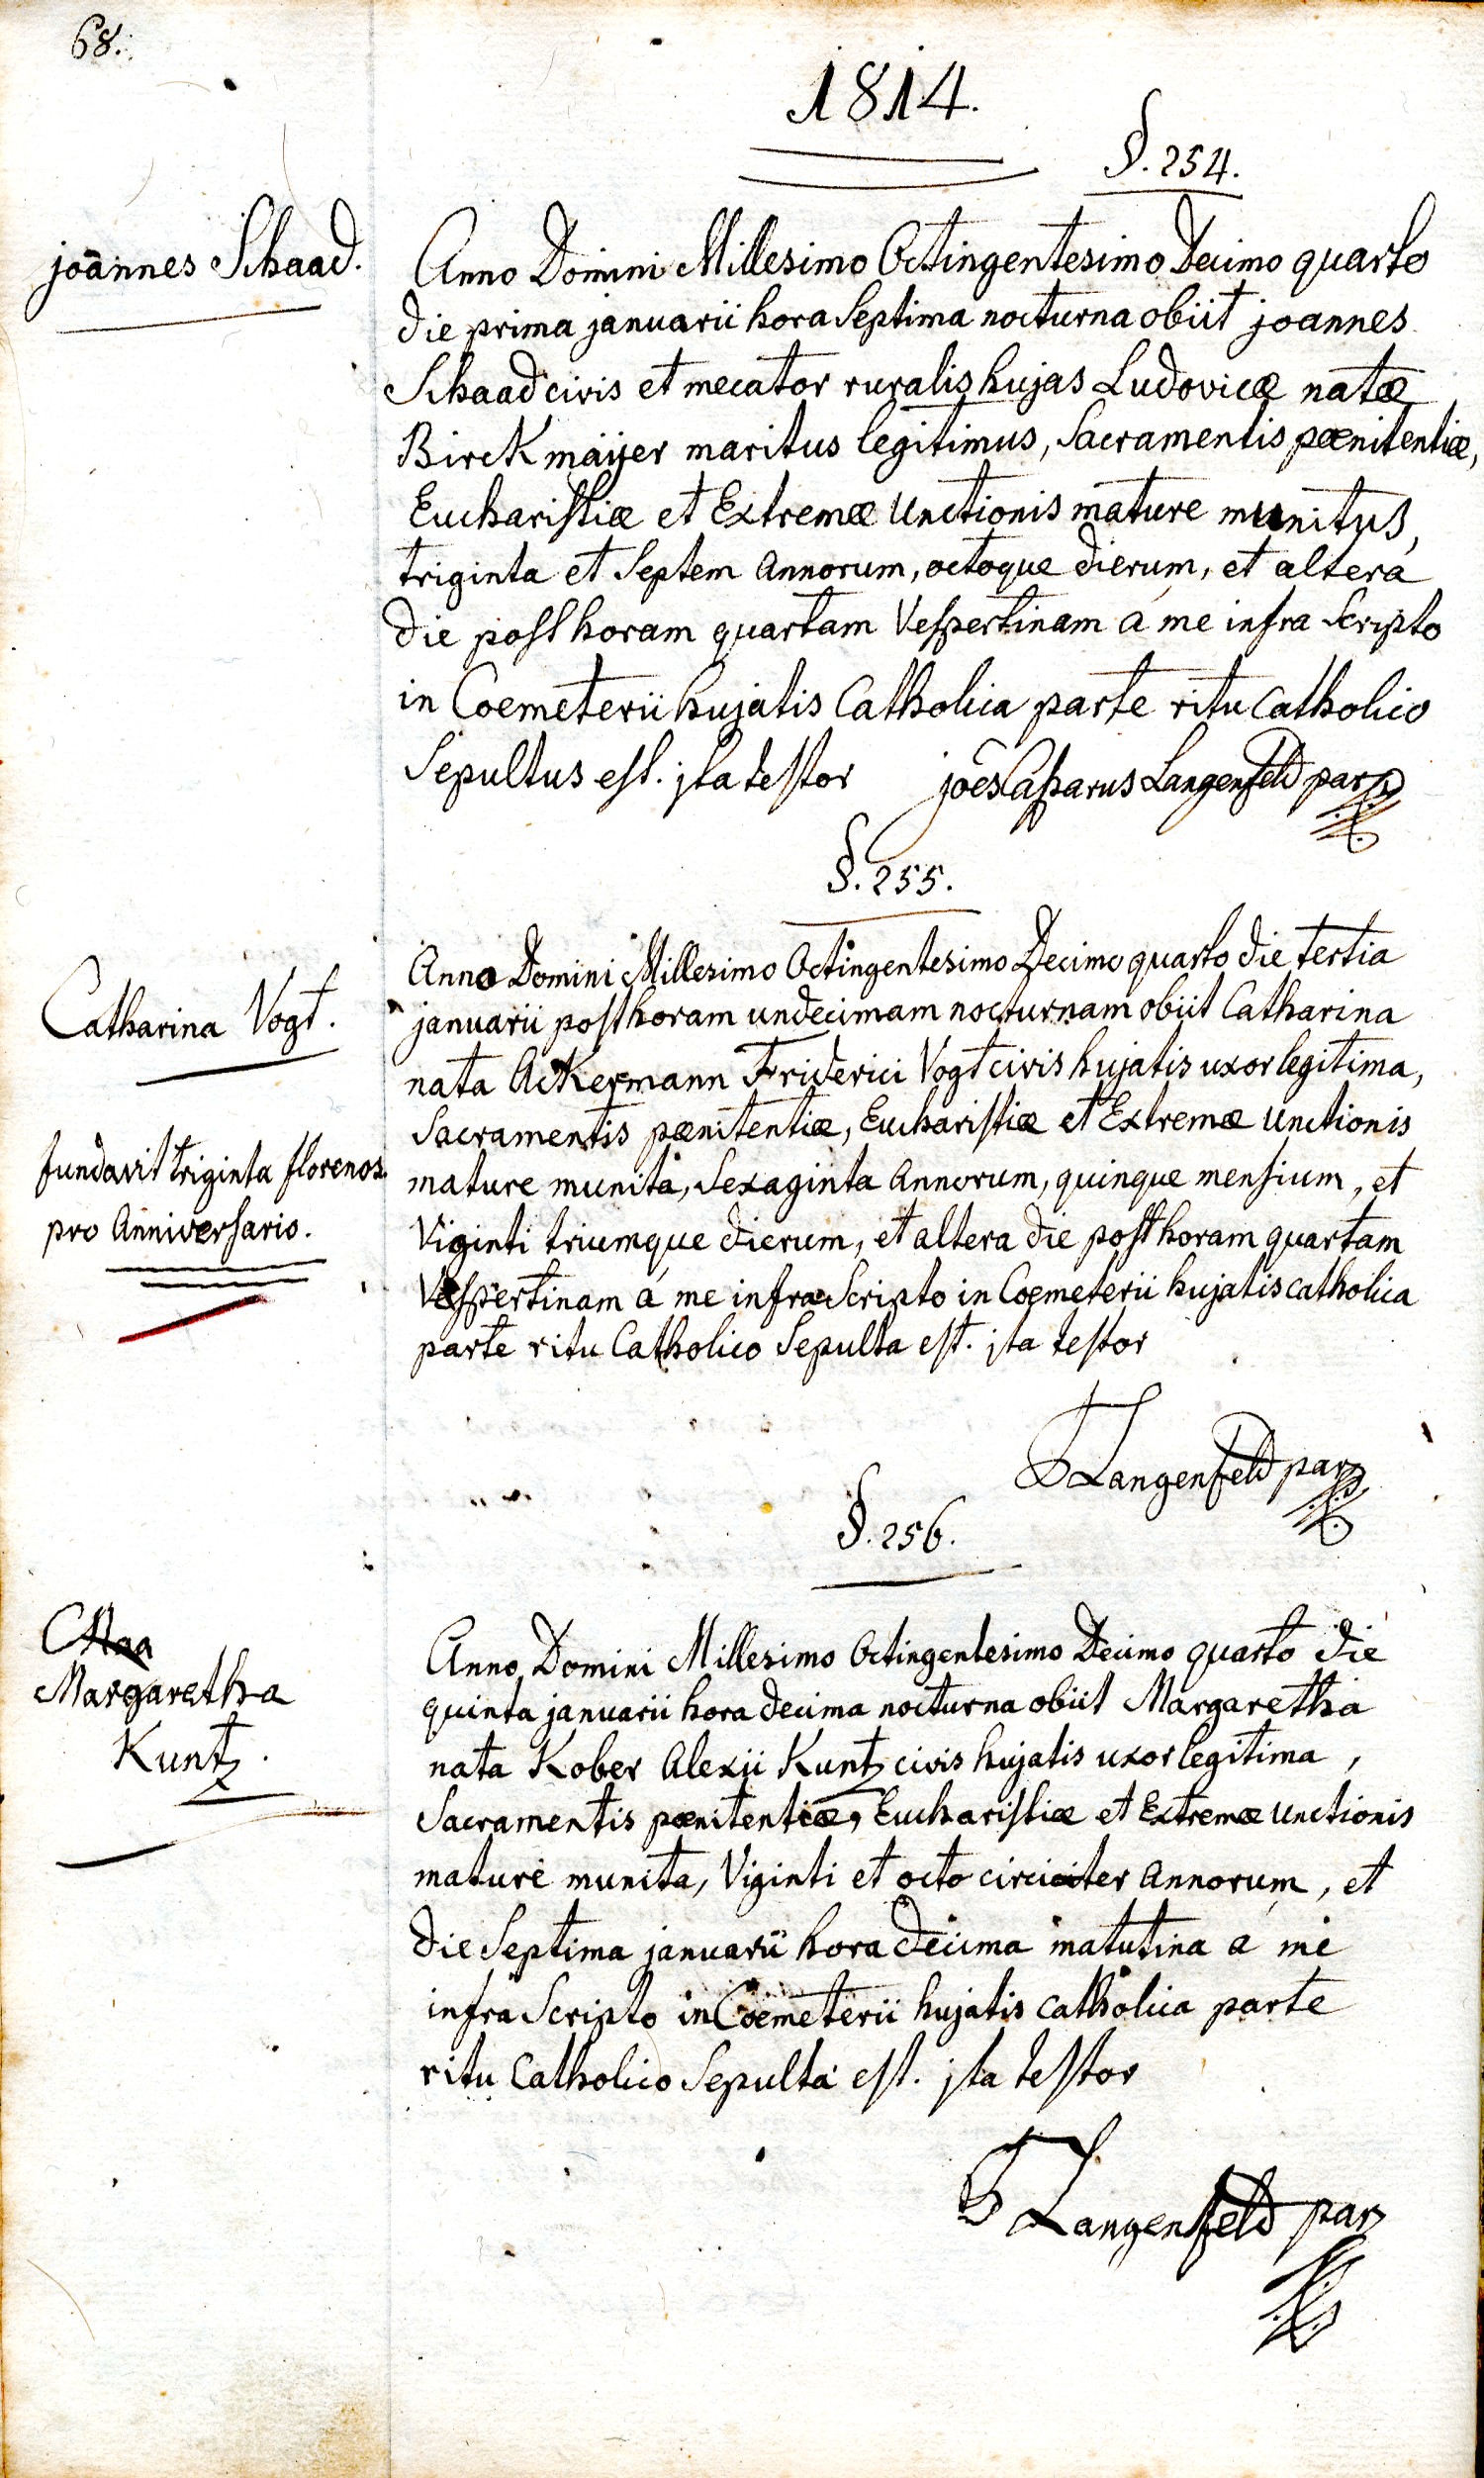 68.
1814.
§. 254.
joannes Schaad.
Anno Domini Millesimo Octingentesimo Decimo quarto
die prima januarii hora Septima nocturna obiit joannes
Schaad civis et mecator ruralis hujas Ludovicæ natæ
Birckmaÿer maritus legitimus, Sacramentis pœnitentiæ,
Eucharistiæ et Extremæ Unctionis mature munitus,
triginta et Septem Annorum, octoque dierum, et altera
die post horam quartam Vespertinam á me infra Scripto
in Coemeterii hujatis Catholica parte ritu Catholico
Sepultus est. jta testor joēs Casparus Langenfeld par
§. 255.
Catharina Vogt.
fundavit triginta florenos
pro Anniversario.
Anno Domini Millesimo Octingentesimo Decimo quarto die tertia
januarii post horam undecimam nocturnam obiit Catharina
nata Ackermann Friderici Vogt civis hujatis uxor legitima,
Sacramentis pœnitentiæ, Eucharistiæ et Extremæ Unctionis
mature munita, Sexaginta Annorum, quinque mensium, et
Viginti triumque dierum, et altera die post horam quartam
Vespertinam á me infra Scripto in Coemeterii hujatis catholica
parte ritu Catholico Sepulta est. jta testor
Langenfeld par
§. 256.
Margaretha
Kuntz.
Anno Domini Millesimo Octingentesimo Decimo quarto die
quinta januarii hora decima nocturna obiit Margaretha
nata Kober Alexii Kuntz civis hujatis uxor legitima,
Sacramentis pœnitentiæ, Eucharistiæ et Extremæ Unctionis
mature munita, Viginti et octo circiciter Annorum, et
die Septima januarii hora decima matutina á me
infra Scripto in Coemeterii hujatis catholica parte
ritu Catholico Sepulta est. jta testor
Langenfeld par